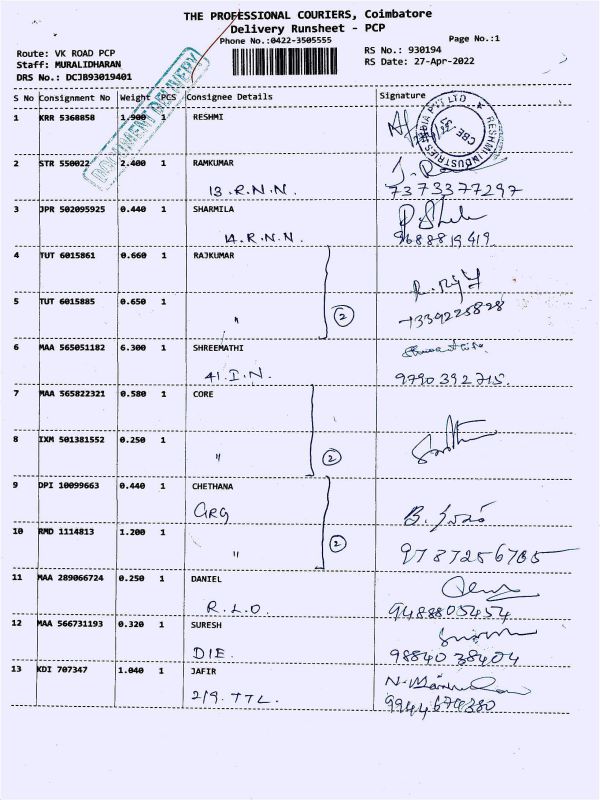 THE PROFESSIONAL COURIERS, Coimbatore
Delivery Runsheet - PCP
Phone No.:0422-3505555
Page No.:1
Route: VK ROAD PCP
RS No.: 930194
Staff: MURALIDHARAN
RS Date: 27-Apr-2022
DRS No.: DCJB93019401
DOCUMENT DELIVERY
S No Consignment No Weight PCS Consignee Details Signature
1 KRR 5368858 1.900 1 RESHMI
RESHMI INDUSTRIES INDIA PVT LTD
CBE-35
2 STR 550022 2.400 1 RAMKUMAR
13.R.N.N. 7373377297
3 JPR 502095925 0.440 1 SHARMILA
14.R.N.N. 9688819419
4 TUT 6015861 0.660 1 RAJKUMAR
5 TUT 6015885 0.650 1
" 2 7339225828
6 MAA 565051182 6.300 1 SHREEMATHI
41.I.N. 9790392715.
7 MAA 565822321 0.580 1 CORE
8 IXM 501381552 0.250 1
" 2
9 DPI 10099663 0.440 1 CHETHANA
GRG
10 RMD 1114813 1.200 1
" 2 9787256765
11 MAA 289066724 0.250 1 DANIEL
R.L.O. 9488805454
12 MAA 566731193 0.320 1 SURESH
DIE. 9884038404
13 KDI 707347 1.040 1 JAFIR
2/9.TTL. 9944679380